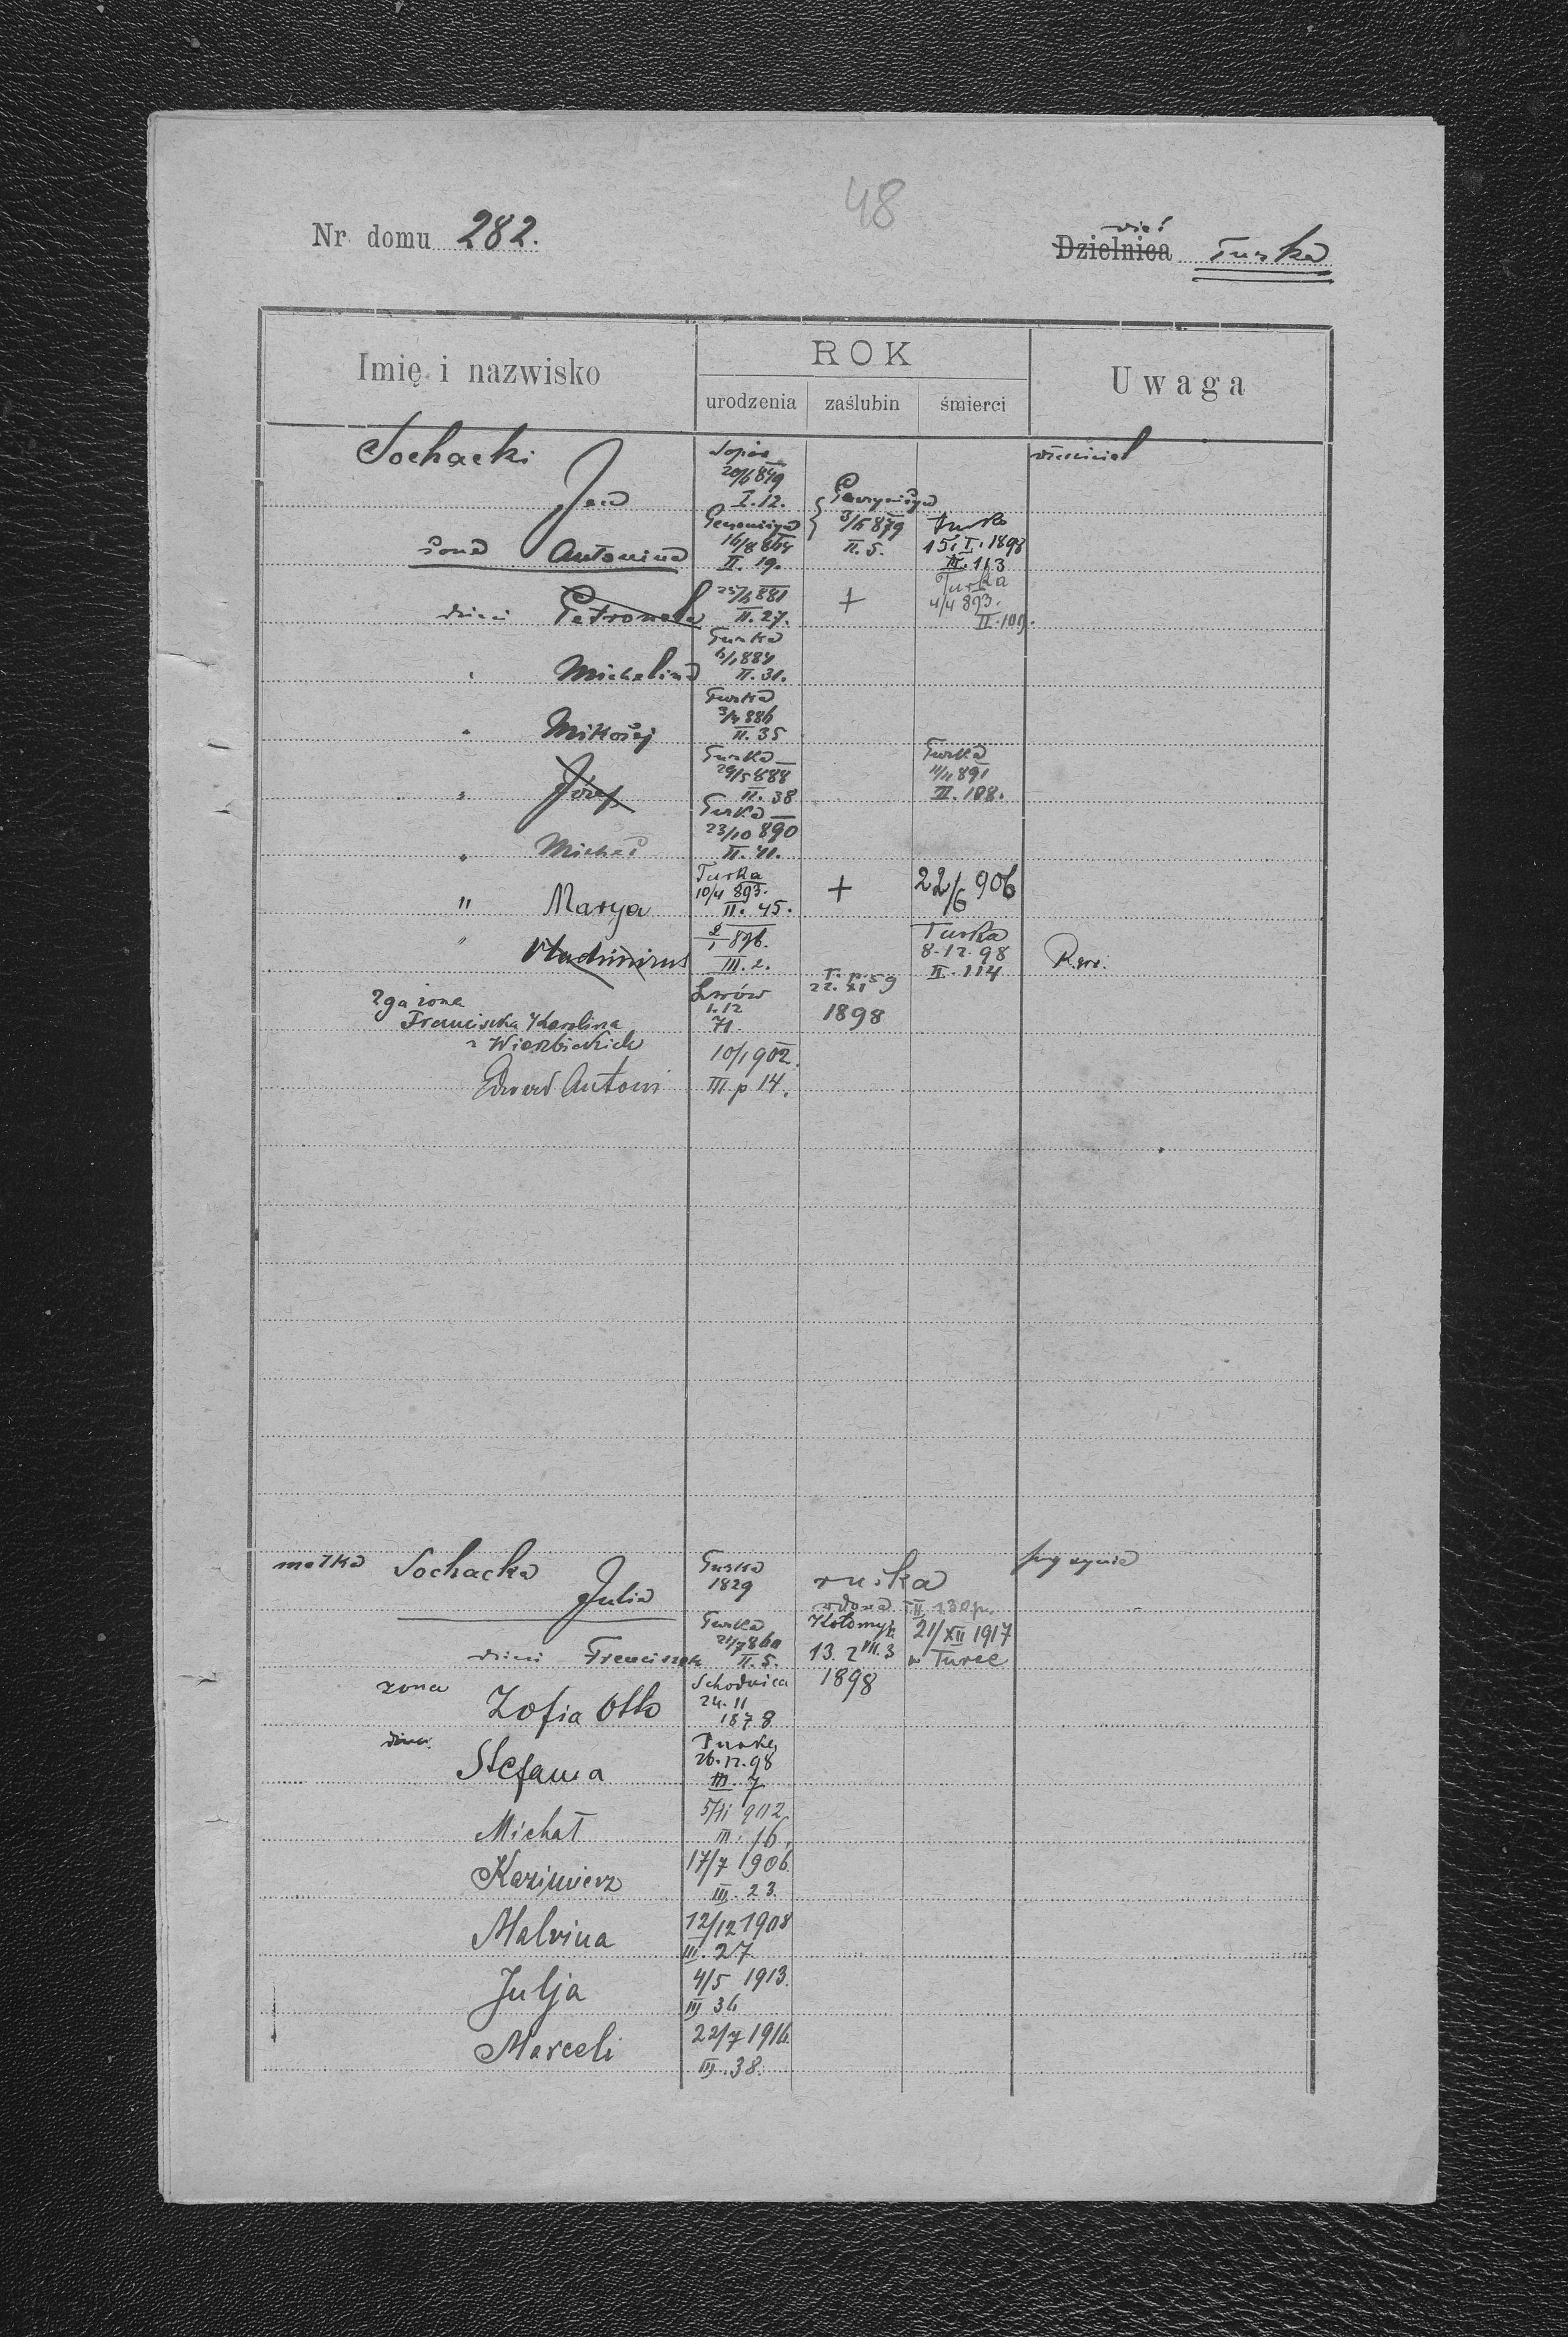 48
Nr domu 282.
wieś
Dzielnica Turka
Imię i nazwisko
ROK
urodzenia zaślubin śmierci
Uwaga
Sochacki
Jan
20/6 849
I. 12.
żona Antonina
16/8 864
II. 19.
3/5 879
II. 5.
Turka
15. I. 1898
II. 113
dzieci Petronela
25/5 881
II. 27.
+
Turka
4/4 893.
II. 109.
" Michalina
Turka
6/1 884
II. 31.
" Mikołaj
Turka
3/4 886
II. 35
" Józef
Turka
29/5 888
II. 38
Turka
11/4 891
II. 108.
" Michał
Turka
23/10 890
II. 41.
" Marya
Turka
10/4 893.
II. 45.
+
22/6 906
" Vladimirus
2/1 896.
III. 2.
Turka
8.12.98
II. 114
R. gr.
2ga żona
Franciszka Karolina
z Wierzbickich
Lwów
1.12
71.
22. XI
1898
Edward Antoni
10/1 902.
III p 14.
matka Sochacka
Julia
Turka
1829
ruska
przy synie
dzieci Franciszek
Turka
21/7 860
II. 5.
Kołomyja
13. 2 VII. 3
1898
21/XII 1917
w Turce
żona
Zofia Otto
Schodnica
24. 11
1878
dzieci
Stefania
Turka
26.12.98
III. 7
Michał
5/11 902.
III. 16.
Kazimierz
17/7 1906.
III. 23.
Malvina
12/12 1908
III. 27
Julja
4/5 1913.
III 36
Marceli
22/7 1916.
III. 38.